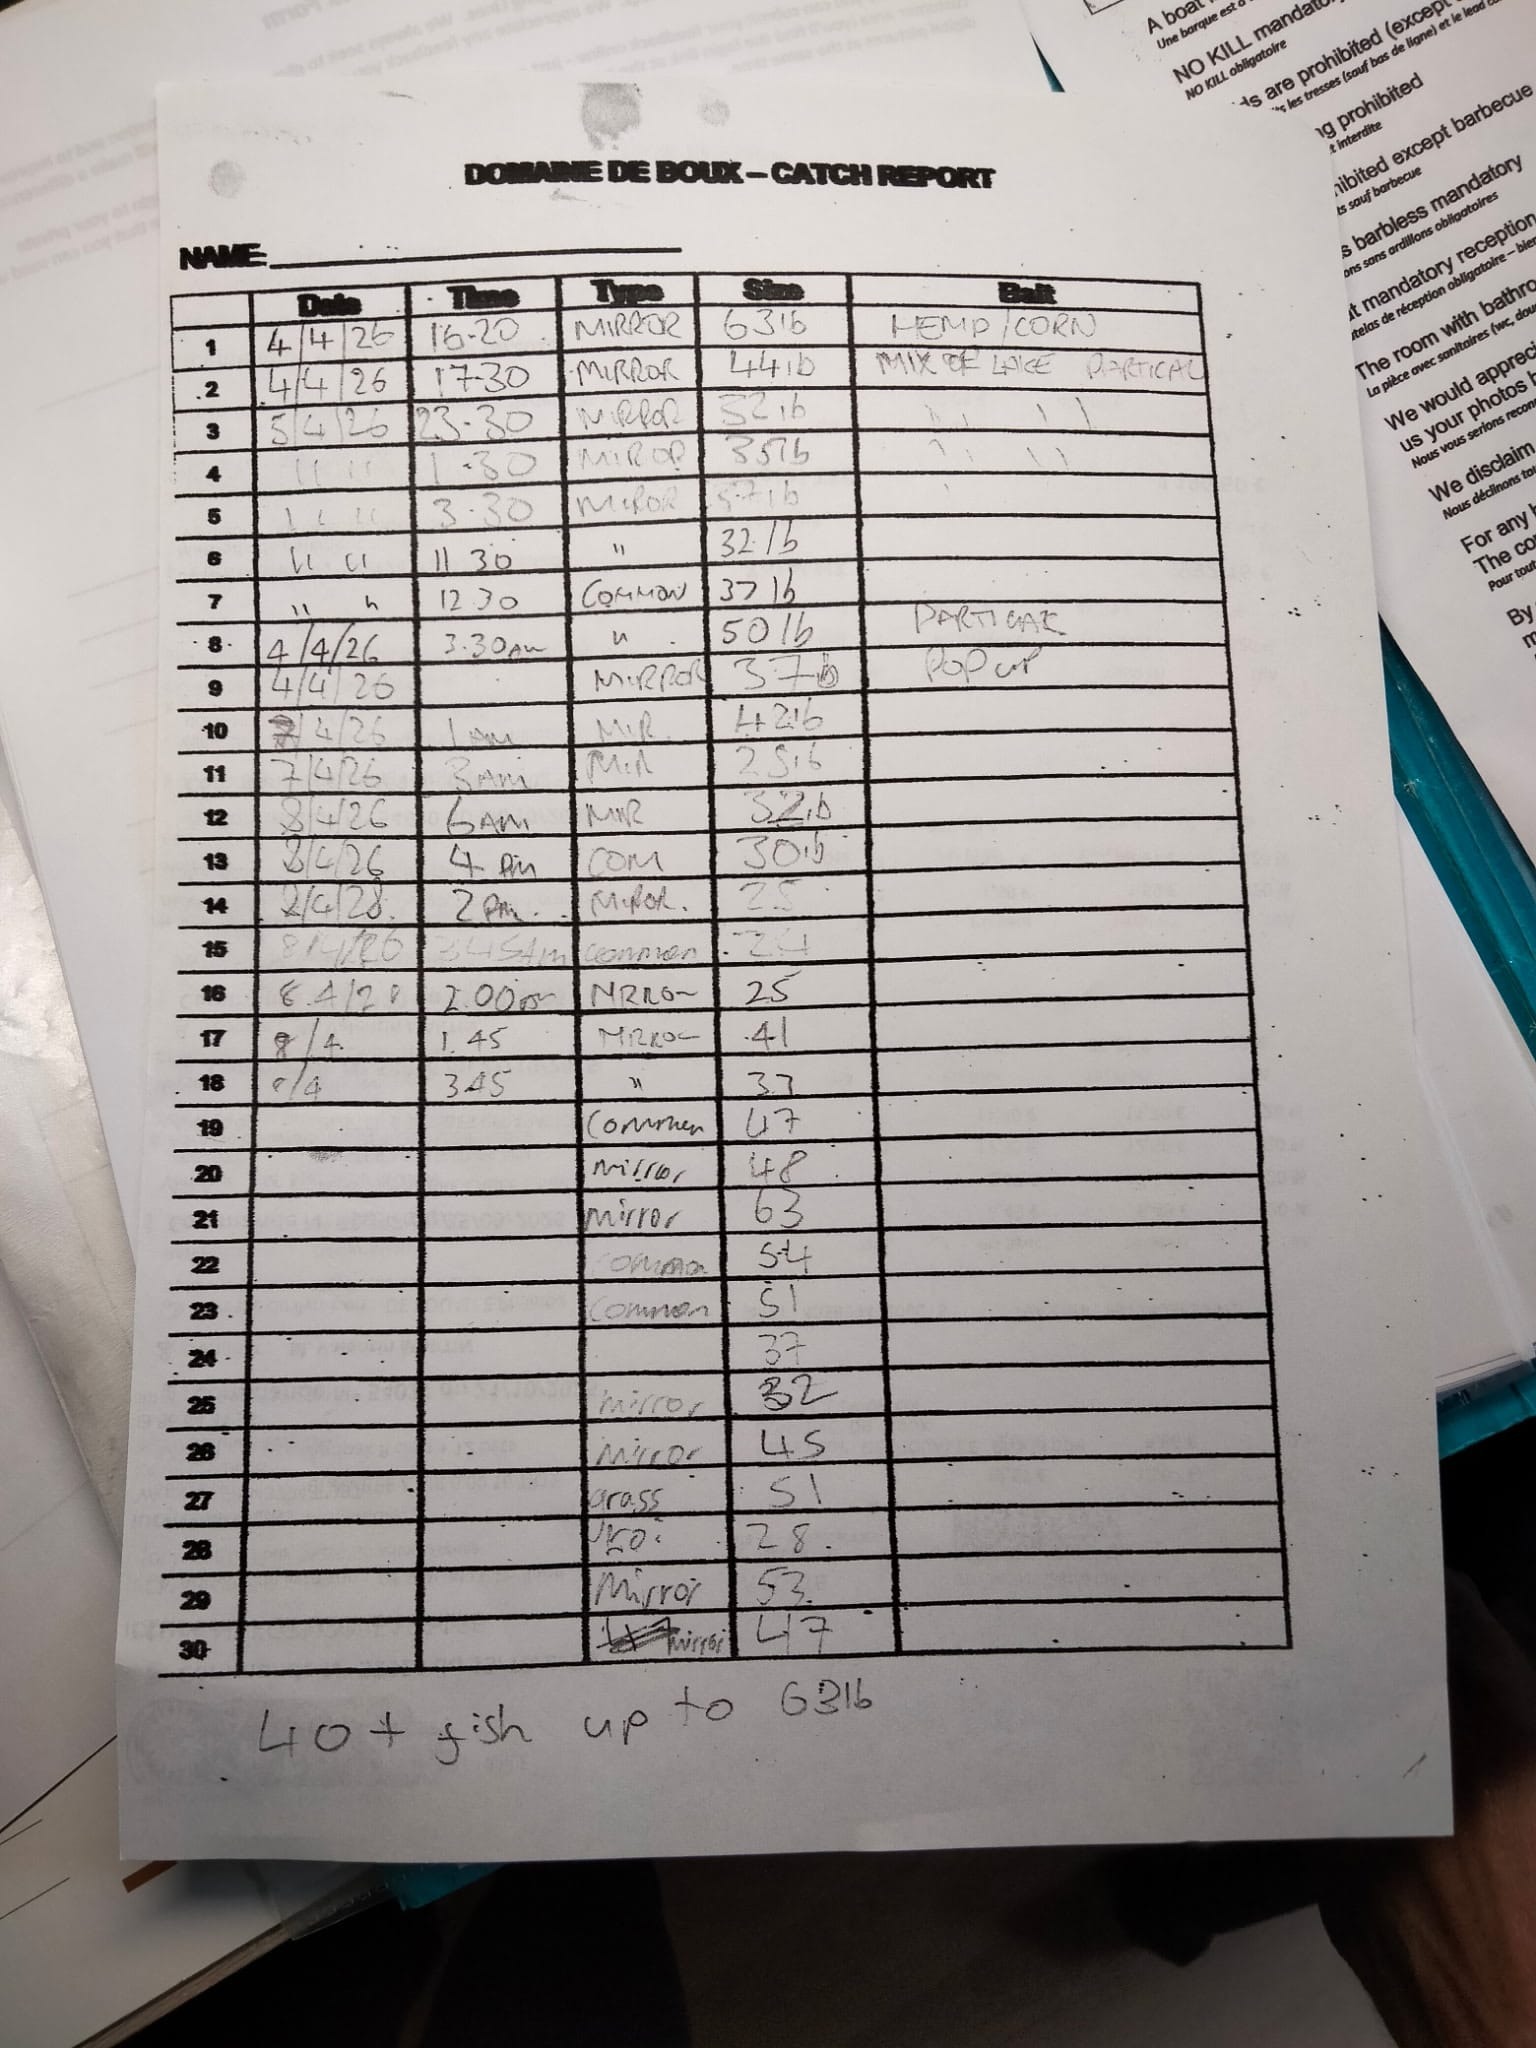 DOMAINE DE BOUX – CATCH REPORT
NAME:
Date Time Type Size Bait
1 4/4/26 16-20 MIRROR 63lb HEMP/CORN
2 4/4/26 17-30 MIRROR 44lb MIX OF LAKE PARTICAL
3 5/4/26 23-30 MIRROR 32lb " "
4 " " 1-30 MIROR 35lb " "
5 " " 3-30 MIROR lb "
6 " " 11 30 " 32lb
7 " " 12 30 COMMON 37lb
8 4/4/26 3.30am " 50lb PARTICAL
9 4/4/26 MIRROR 37lb POP UP
10 7/4/26 1AM MIR. 42lb
11 7/4/26 3AM MIR 25lb
12 8/4/26 6AM MIR 32lb
13 8/4/26 4 PM COM 30lb
14 2PM. MIROR. 25
15 8/4/26 3.45Am common 24
16 2.00 25
17 8/4 1.45 41
18 8/4 345 "
19 Common 47
20 mirror 48
21 mirror 63
22 54
23 Common 51
24 37
25 mirror 32
26 mirror 45
27 Grass 51
28 Koi 28.
29 Mirror 53
30 mirror 47
40+ fish up to 63lb
A boat
Une barque est
NO KILL mandatory
NO KILL obligatoire
are prohibited (except
les tresses (sauf bas de ligne) et le lead
prohibited
interdite
except barbecue
sauf barbecue
barbless mandatory
sans ardillons obligatoires
mandatory reception
de réception obligatoire –
The room with
La pièce avec sanitaires (wc,
We would
us your photos
Nous vous serions
We disclaim
Nous déclinons
For any
The
Pour
By